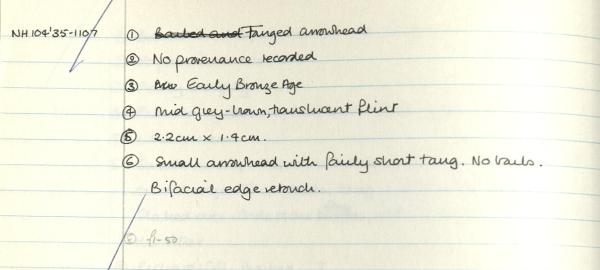 NH 104'35-1107 ① ~~Barbed and~~ Tanged arrowhead
② No provenance recorded
③ Early Bronze Age
④ Mid grey-brown, translucent flint
⑤ 2.2cm x 1.4cm.
⑥ Small arrowhead with fairly short tang. No barbs.
Bifacial edge retouch.
f1-50